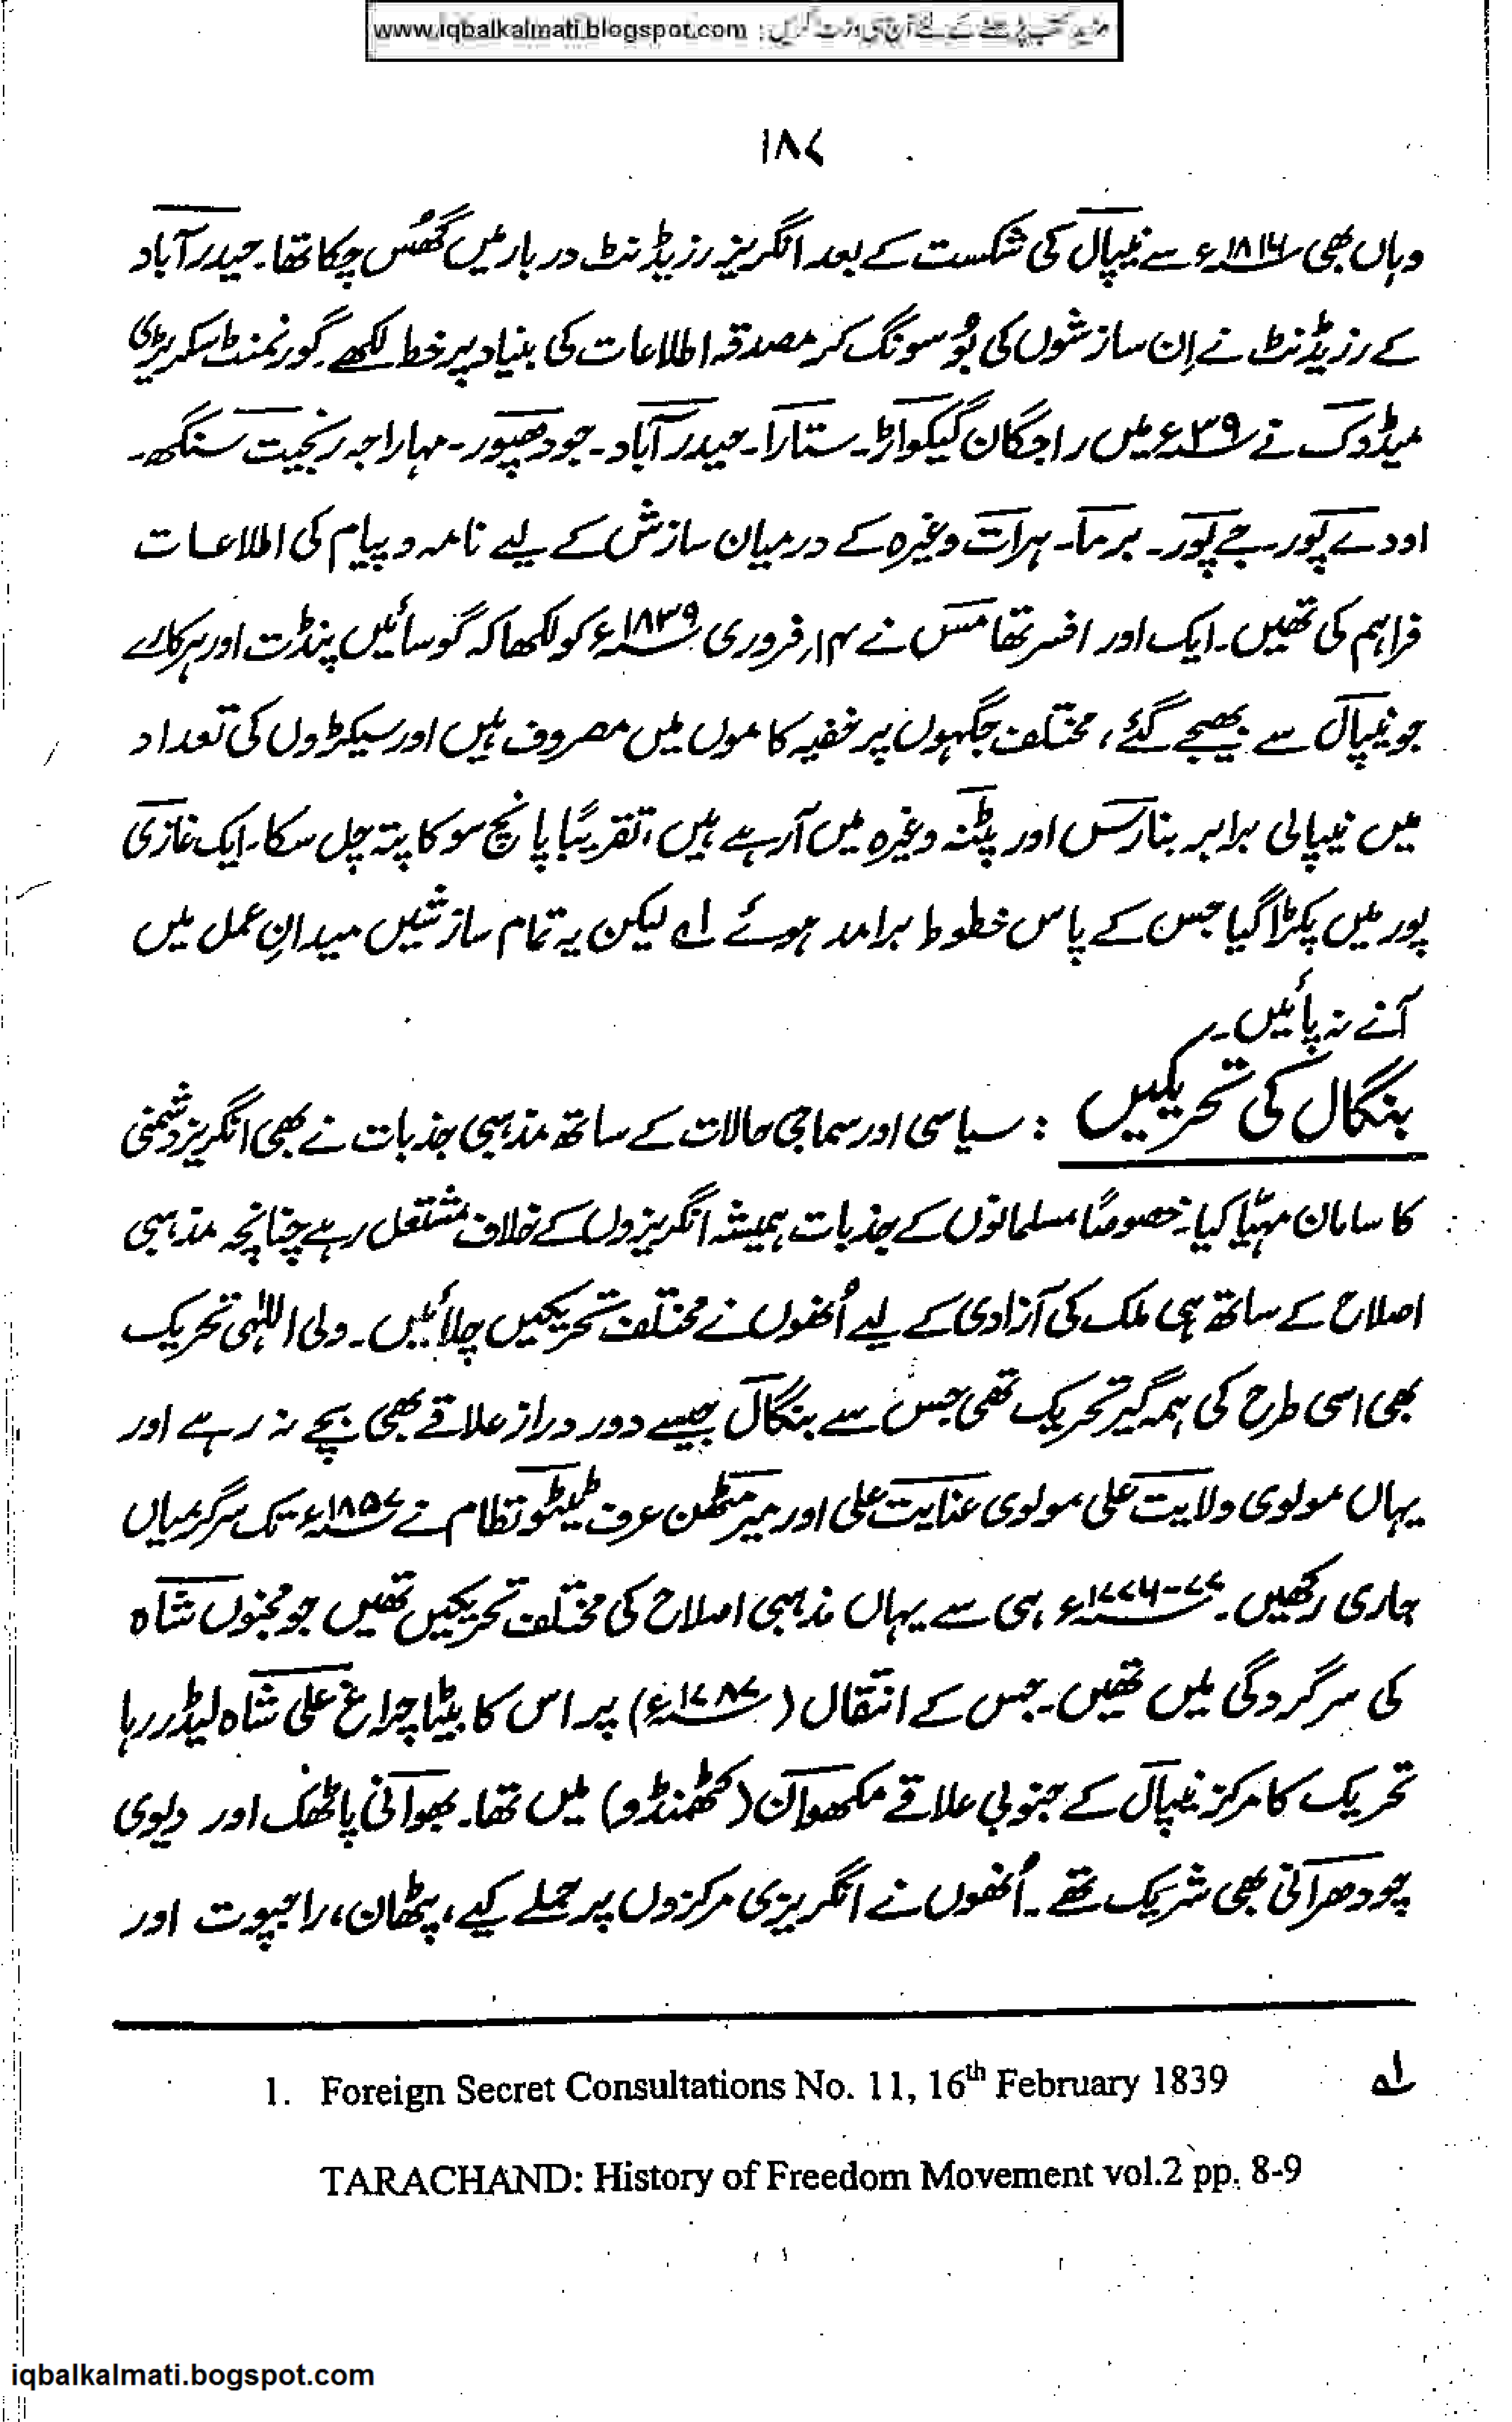 مزید کتب پڑھنے کے لئے آج ہی وزٹ کریں : www.iqbalkalmati.blogspot.com
۱۸۷
وہاں بھی ۱۸۱۶ء سے نیپال کی شکست کے بعد انگریز رزیڈنٹ دربار میں گھُس چکا تھا۔ حیدرآباد
کے رزیڈنٹ نے اِن سازشوں کی بُو سونگ کر مصدقہ اطلاعات کی بنیاد پر خط لکھے۔ گورنمنٹ سکریٹری
میڈوک نے ۳۹ء میں راجگان گیکواڑ۔ ستارا۔ حیدرآباد۔ جودھپور۔ مہاراجہ رنجیت سنگھ۔
اودے پور۔ جے پور۔ برما۔ ہرات وغیرہ کے درمیان سازش کے لیے نامہ و پیام کی اطلاعات
فراہم کی تھیں۔ ایک اور افسر تھامس نے ۱۴ر فروری ۱۸۳۹ء کو لکھا کہ گوسائیں پنڈت اور ہرکارے
جو نیپال سے بھیجے گئے، مختلف جگہوں پر خفیہ کاموں میں مصروف ہیں اور سیکڑوں کی تعداد
میں نیپالی برابر بنارس اور پٹنہ وغیرہ میں آرہے ہیں، تقریباً پانچ سو کا پتہ چل سکا۔ ایک غازی
پور میں پکڑا گیا جس کے پاس خطوط برامد ہوئے لہ لیکن یہ تمام سازشیں میدانِ عمل میں
آنے نہ پائیں۔
بنگال کی تحریکیں : سیاسی اور سماجی حالات کے ساتھ مذہبی جذبات نے بھی انگریز دشمنی
کا سامان مہیّا کیا۔ خصوصاً مسلمانوں کے جذبات ہمیشہ انگریزوں کے خلاف مشتعل رہے چنانچہ مذہبی
اصلاح کے ساتھ ہی ملک کی آزادی کے لیے اُنھوں نے مختلف تحریکیں چلائیں۔ ولی اللہٰی تحریک
بھی اسی طرح کی ہمہ گیر تحریک تھی جس سے بنگال جیسے دور دراز علاقے بھی بچے نہ رہے اور
یہاں مولوی ولایت علی مولوی عنایت علی اور میر مٹھن عرف ٹیٹو نظام نے ۱۸۵۷ء تک سرگرمیاں
جاری رکھیں۔ ۷۷-۱۷۷۶ء ہی سے یہاں مذہبی اصلاح کی مختلف تحریکیں تھیں جو مجنوں شاہ
کی سرگردگی میں تھیں۔ جس کے انتقال (۱۷۸۷ء) پر اس کا بیٹا چراغ علی شاہ لیڈر رہا
تحریک کا مرکز نیپال کے جنوبی علاقے مکھوان (کٹھمنڈو) میں تھا۔ بھوانی پاٹھک اور دیوی
چودھرانی بھی شریک تھے۔ اُنھوں نے انگریزی مرکزوں پر حملے کیے، پٹھان، راجپوت اور
لہ 1. Foreign Secret Consultations No. 11, 16th February 1839
TARACHAND: History of Freedom Movement vol.2 pp. 8-9
iqbalkalmati.bogspot.com